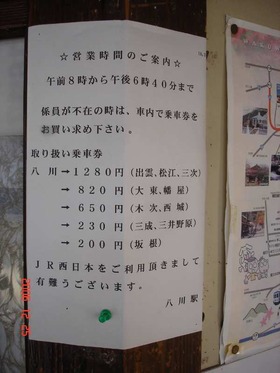 ☆営業時間のご案内☆
午前8時から午後6時40分まで
係員が不在の時は、車内で乗車券を
お買い求め下さい。
取り扱い乗車券
八川→1280円(出雲、松江、三次)
→820円(大東、幡屋)
→650円(木次、西城)
→230円(三成、三井野原)
→200円(坂根)
JR西日本をご利用頂きまして
有難うございます。
八川駅